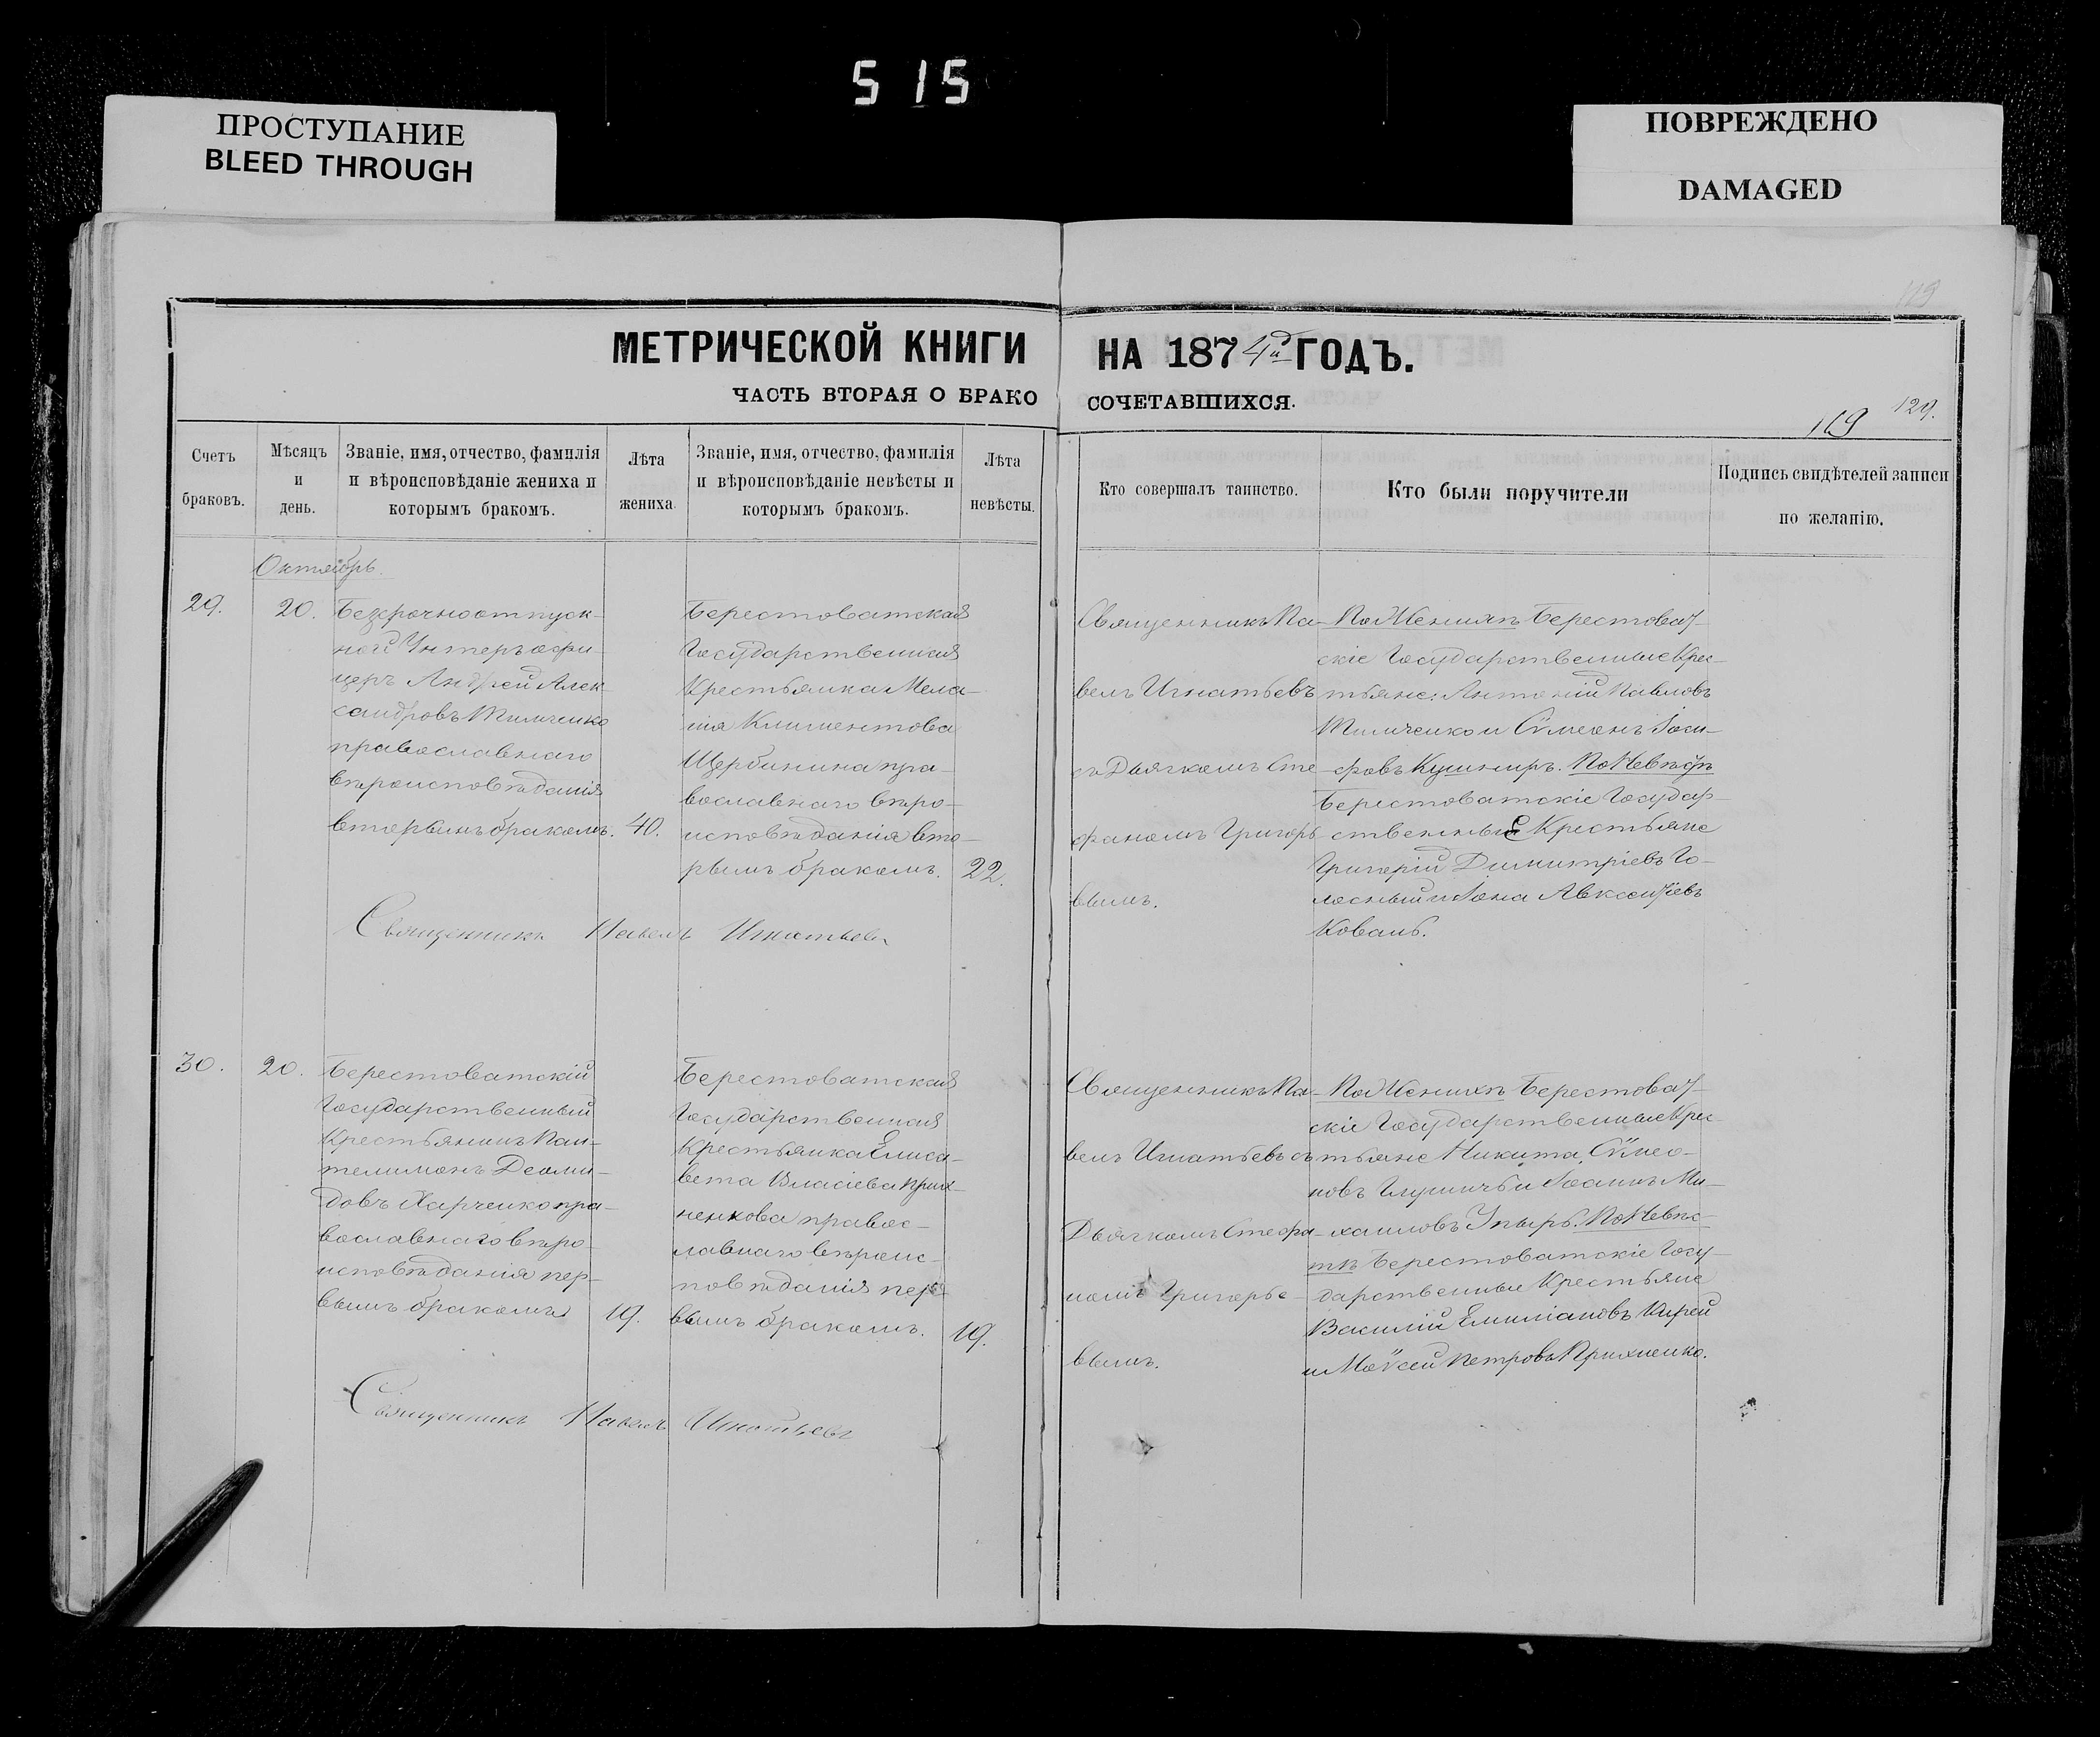 515
ПРОСТУПАНИЕ
BLEED THROUGH
ПОВРЕЖДЕНО
DAMAGED
119
МЕТРИЧЕСКОЙ КНИГИ НА 1874й ГОДЪ.
ЧАСТЬ ВТОРАЯ О БРАКОСОЧЕТАВШИХСЯ.
119 129.
Счетъ
браковъ.
Мѣсяцъ
и
день.
Званіе, имя, отчество, фамилія
и вѣроисповѣданіе жениха и
которымъ бракомъ.
Лѣта
жениха.
Званіе, имя, отчество, фамилія
и вѣроисповѣданіе невѣсты и
которымъ бракомъ.
Лѣта
невѣсты.
Кто совершалъ таинство.
Кто были поручители
Подпись свидѣтелей записи
по желанію.
Октябрь.
29.
20.
Безсрочноотпуск-
ной Унтеръ офи-
церъ Андрей Алек
сандровъ Тимченко
православнаго
вѣроисповѣданія
вторымъ бракомъ.
40.
Берестоватская
Государственная
Крестьянка Мела-
нія Климентова
Щербинина пра-
вославнаго вѣро-
исповѣданія вто-
рымъ бракомъ.
22.
Священникъ Па-
велъ Игнатьевъ
съ Дьячкомъ Сте-
фаномъ Григорь
вымъ.
По Женихѣ Берестоват-
скіе Государственные Крес-
тьяне: Антоній Павловъ
Тимченко и Сѵмеонъ Іоси-
фовъ Кушниръ. По Невѣстѣ
Берестоватскіе Государ-
ственные Крестьяне
Григорій Димитріевъ Го-
лосный и Іона Авксентіевъ
Коваль.
Священникъ Павелъ Игнатьевъ
30.
20.
Берестоватскій
Государственный
Крестьянинъ Пан-
телимонъ Деоми-
довъ Харченко пра-
вославнаго вѣро-
исповѣданія пер-
вымъ бракомъ
19.
Берестоватская
Государственная
Крестьянка Елиса-
вета Власіева Прих-
ненкова правос-
лавнаго вѣроис-
повѣданія пер-
вымъ бракомъ.
19.
Священникъ Па-
велъ Игнатьевъ съ
Дьячкомъ Стефа-
номъ Григорье-
вымъ.
По Женихѣ Берестоват-
скіе Государственные Крес-
тьяне Никита Сѵмео-
новъ и Іоаннъ Ми-
хаиловъ Упырь. По Невѣс-
тѣ Берестоватскіе Госу-
дарственные Крестьяне
Василій Емиліановъ Кирей
и Моѵсей Петровъ Прихненко.
Священникъ Павелъ Игнатьевъ